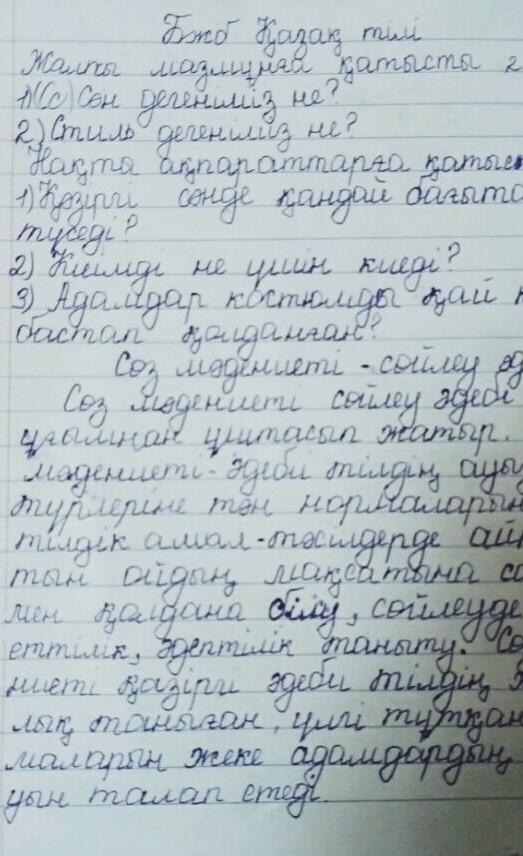 Бжб Қазақ тілі
Жалпы мазмұнға қатысты 2
1)(Сс) Сән дегеніміз не?
2) Стиль дегеніміз не?
Нақты ақпараттарға қатыс
1) Қәзіргі сәнде қандай бағыта
түседі?
2) Киімді не үшін киеді?
3) Адамдар костюмды қай
бастап қолданған?
Сөз мәдениеті - сөйлеу әд
Сөз мәдениеті сөйлеу әдебі
ұғымнан ұштасып жатыр.
мәдениеті - әдеби тілдің ауы
түрлеріне тән нормаларын
тілдік амал-тәсілдерде ай
тын ойдың мақсатына са
мен қолдана білу, сөйлеуде
еттілік, әдептілік таныту. Сө
ниеті қазіргі әдеби тілдің
лық таныған, үлгі тұтқан
маларын жеке адамдардың
уын талап етеді.